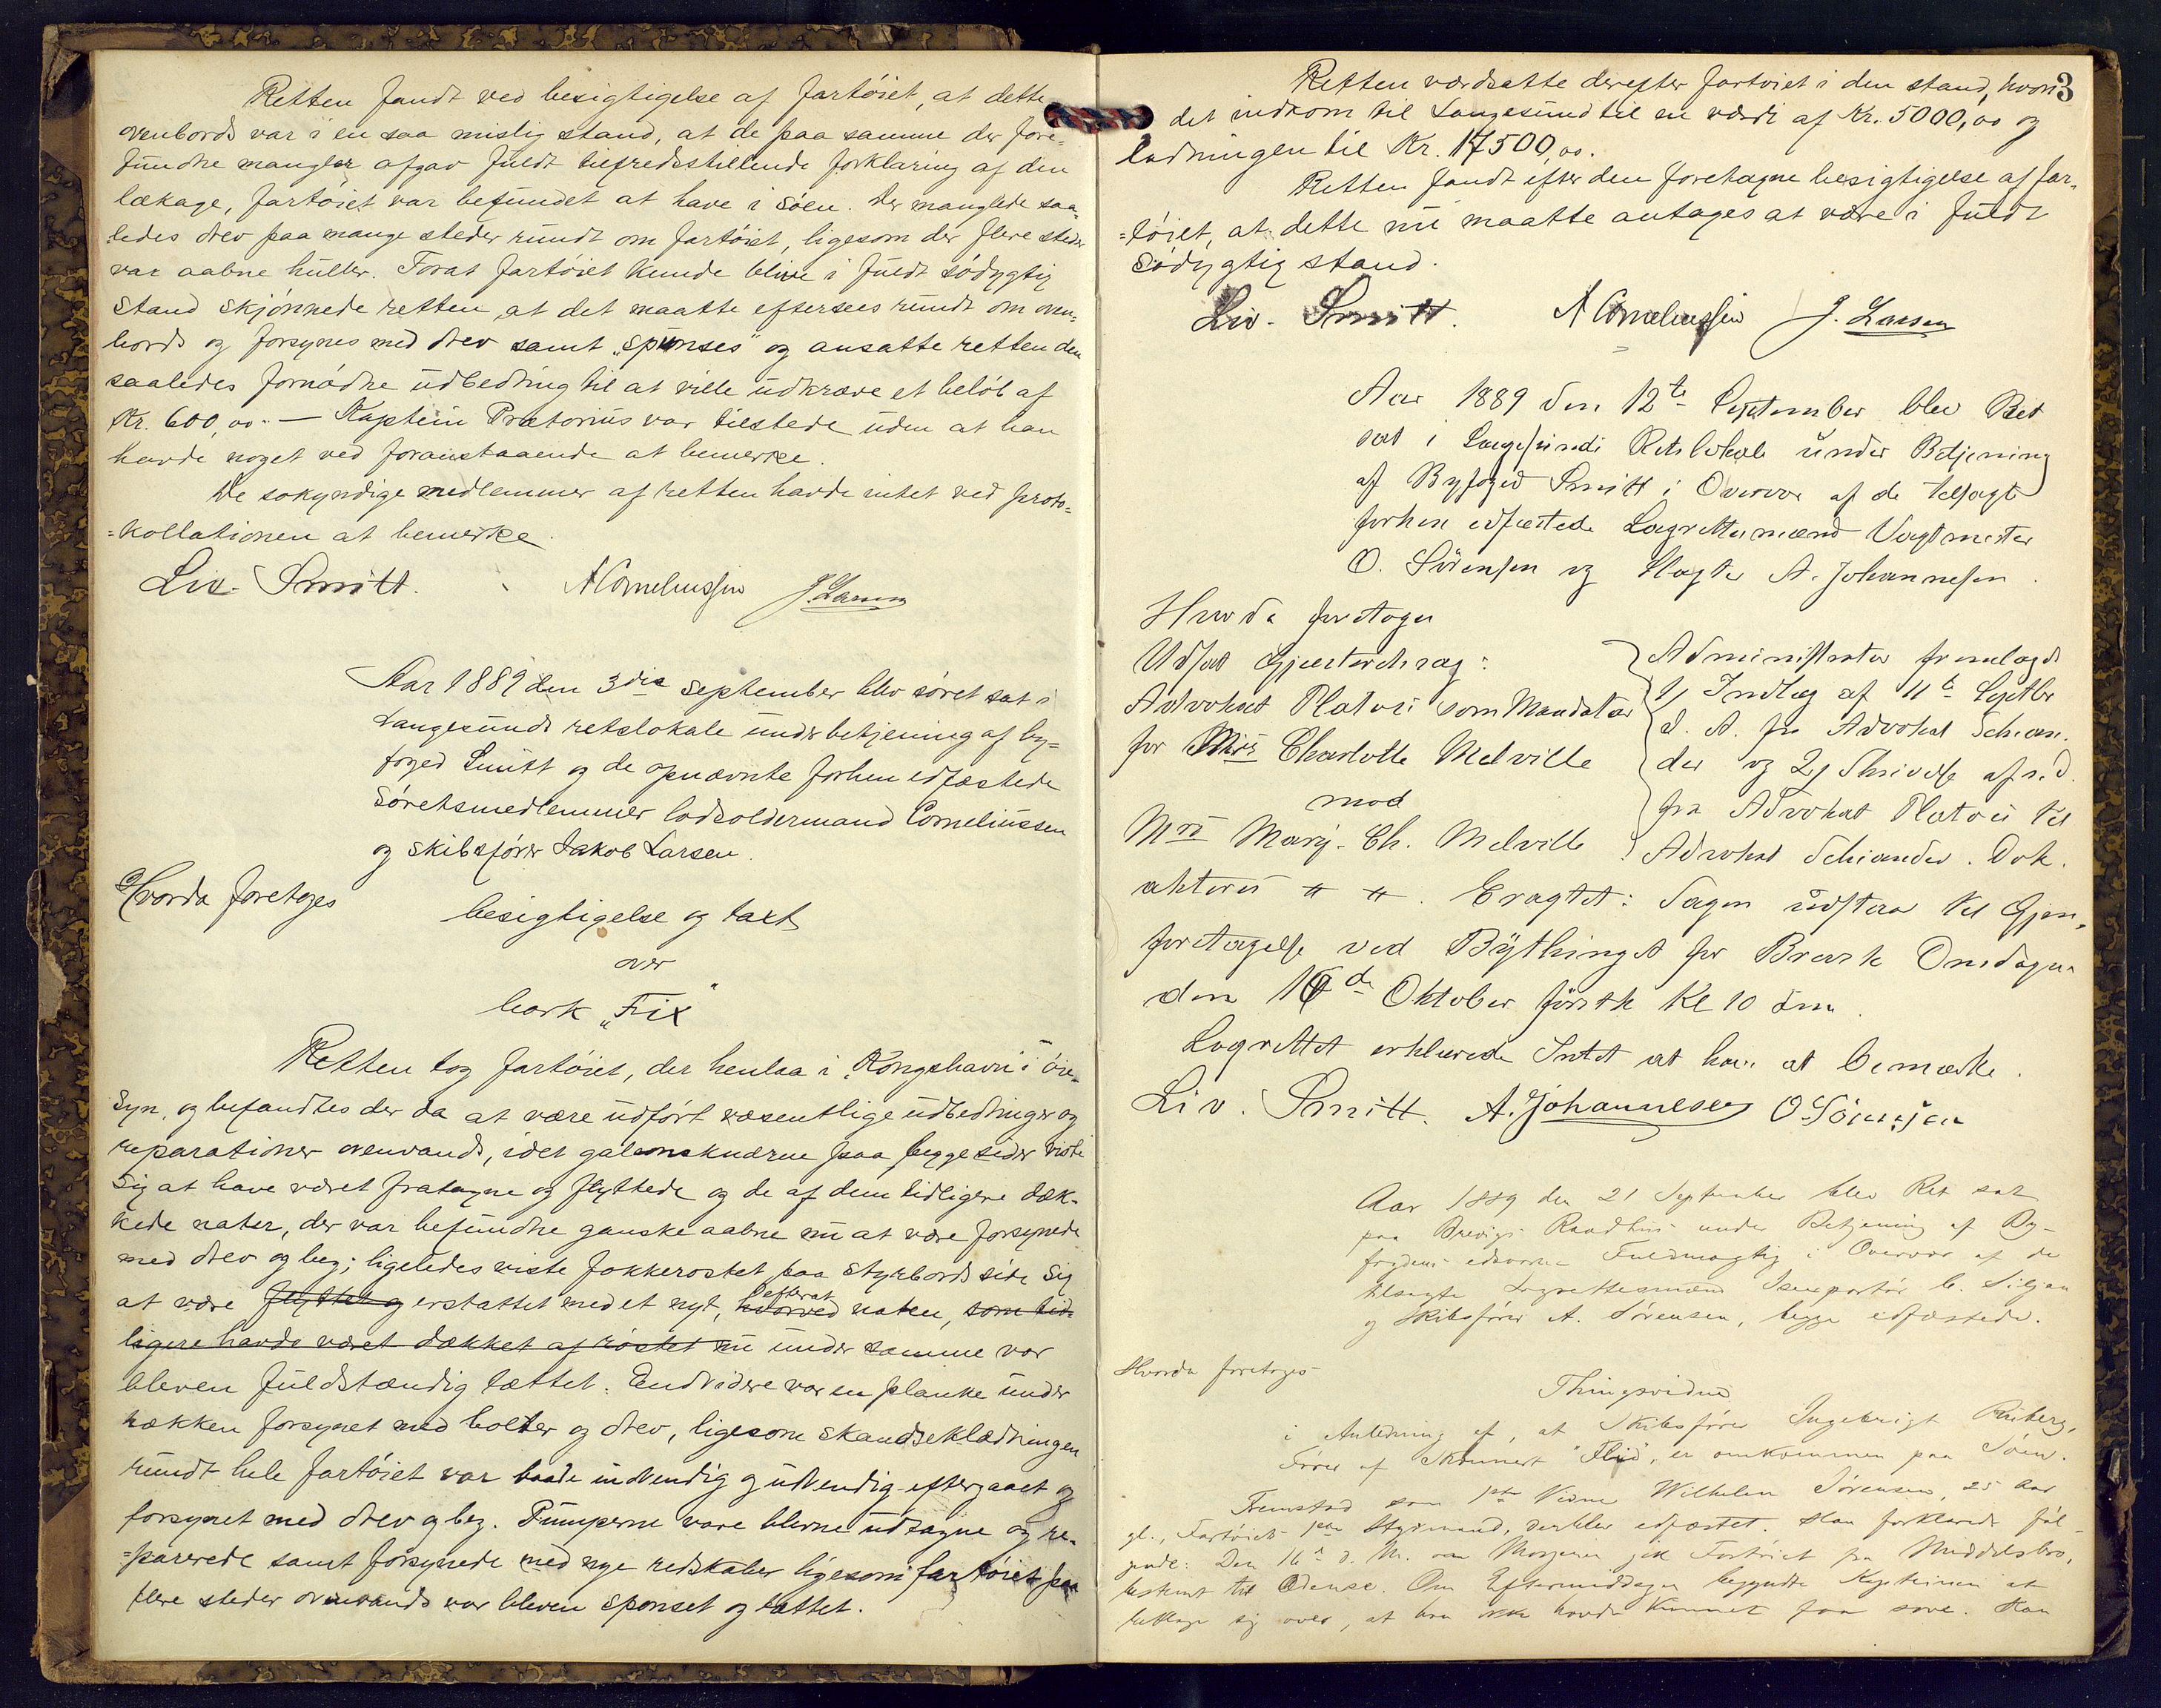 Retten fandt ved besigtigelse af fartöiet, at dette
ovenbords var i en saa mislig stand, at de paa samme der fore-
fundne mangler afgav fuldt tilfredsstillende forklaring af den
lækage, fartöiet var befundet at have i söen. Der manglede saa-
ledes drev paa mange steder rundt om fartöiet, ligesom der flere steder
var aabne huller. Forat fartöiet kunde blive i fuldt södygtig
stand skjönnede retten, at det maatte eftersees rundt om oven-
bords og forsynes med drev samt „spunses" og ansatte retten den
saaledes fornödne udbedring til at ville udkræve et belöb af
Kr. 600,00. — Kaptein Prætorius var tilstede uden at han
havde noget ved foranstaaende at bemerke.
De sokyndige medlemmer af retten havde intet ved proto-
=kollationen at bemerke.
Liv. Smitt. N Corneliussen J. Larsen
Aar 1889 den 3die september blev söret sat i
Langesunds retslokale under betjening af by=
foged Smitt og de opnævnte forhen edfæstede
söretsmedlemmer lodsoldermand Corneliussen
og skibsförer Jakob Larsen.
Hvorda foretoges
besigtigelse og taxt
over
bark „Fix"
Retten tog fartöiet, der henlaa i „Kongshavn" i öie-
syn, og befandtes der da at være udfört væsentlige udbedringer og
reparationer ovenvands, idet galionsknærne paa begge sider viste
sig at have været fratagne og flyttede og de af dem tidligere dæk-
kede nater, der var befundne ganske aabne nu at være forsynede
med drev og beg; ligeledes viste fokkerostet paa styrbords side sig
at være flyttet og erstattet med et nyt, hvorved efterat naten, som tid-
ligere havde været dækket af röstet nu under samme var
bleven fuldstændig tættet. Endvidere var en planke under
hækken forsynet med bolter og drev, ligesom skandseklædningen
rundt hele fartöiet var baade indvendig og udvendig eftergaaet og
forsynet med drev og beg. Pumperne vare blevne udtagne og re-
=parerede samt forsynede med nye redskaber ligesom fartöiet paa
flere steder ovenvands var bleven sponset og tættet.
3
Retten værdsatte derefter fartöiet i den stand, hvori
det indkom til Langesund til en værdi af Kr. 5000,00 og
ladningen til Kr. 17500,00.
Retten fandt efter den foretagne besigtigelse af far-
=töiet, at dette nu maatte antages at være i fuldt
södygtig stand.
Liv. Smitt. N Corneliussen J. Larsen
Aar 1889 den 12te September blev Ret
sat i Langesunds Retslokale under Betjening
af Byfoged Smitt i Overvær af de tilsagte
forhen edfæstede Lagrettesmænd Vagtmester
O. Sörensen og Slagter A. Johannesen.
Hvorda foretoges
Udsat Gjæsteretssag:
Advokat Platou som Mandatar
for Miss Charlotte Melville
mod
Mrs Mary Ch. Melville
Administrator fremlagde
1/ Indlæg af 11te Septbr
d. A. fra Advokat Schian-
der og 2/ Skrivelse af s. D.
fra Advokat Platou til
Advokat Schiander. Dok.
akteres " " . Eragtet: Sagen udstaar til Gjen-
foretagelse ved Bythinget for Brevik Onsdagen
den 16de Oktober förstk Kl 10 Fm.
Lagrettet erklærede Intet at have at bemærke.
Liv. Smitt. A. Johannesen O Sörensen
Aar 1889 den 21 September blev Ret sat
paa Brevigs Raadhus under Betjening af By-
fogdens edsvorne Fuldmægtig i Overvær af de
tilsagte Lagrettesmænd Isexportör C. Siljan
og Skibsförer A. Sörensen, begge edfæstede.
Hvorda foretoges
Thingsvidne
i Anledning af, at Skibsförer Ingebrigt
Förer af Skonnert "Flid", er omkommen paa Söen.
Fremstod som 1ste Vidne Wilhelm Sörensen, 25 Aar
gl., Fartöiets Styrmand, der blev edfæstet. Han forklarede föl-
gende: Den 16de d. M. om Morgenen gik Fartöiet fra Middelsbro,
bestemt til Odense. Om Eftermiddagen begyndte Kapteinen at
beklage sig over, at han ikke havde kunnet faa sove. Han